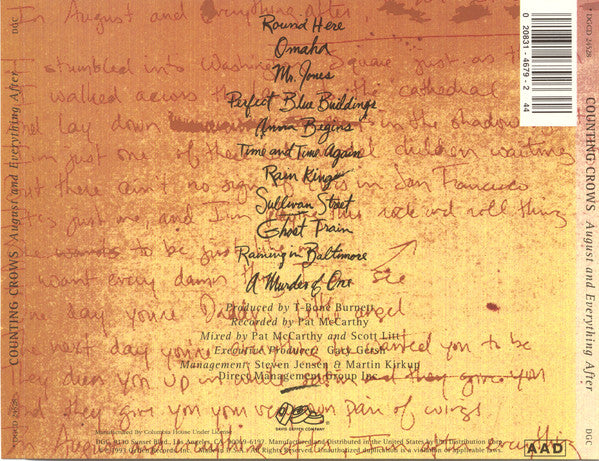 DGC
COUNTING CROWS August and Everything After
DGCD-24528
In August and everything after
I stumbled into Washington Square just as t
I walked across the cathedral
lay down in the shadow
I'm just one of these children waiting
but there ain't no sign of in San Francisco
just me, and I'm this rock and roll thing
wanted to be just
want every damn thing I see
one day you're the angel
next day you're wanted you to be
dress you up in and they give you
they give you your own pair of wings
Round Here
Omaha
Mr. Jones
Perfect Blue Buildings
Anna Begins
Time and Time Again
Rain King
Sullivan Street
Ghost Train
Raining in Baltimore
A Murder of One
Produced by T-Bone Burnett
Recorded by Pat McCarthy
Mixed by Pat McCarthy and Scott Litt
Executive Producer: Gary Gersh
Management: Steven Jensen & Martin Kirkup
Direct Management Group Inc.
DAVID GEFFEN COMPANY
Manufactured by Columbia House Under License
DGC, 9130 Sunset Blvd., Los Angeles, CA 90069-6197. Manufactured and Distributed in the United States by Uni Distribution Corp.
0 20831-4679-2 44
DGCD-24528
COUNTING CROWS August and Everything After
DGC
AAD